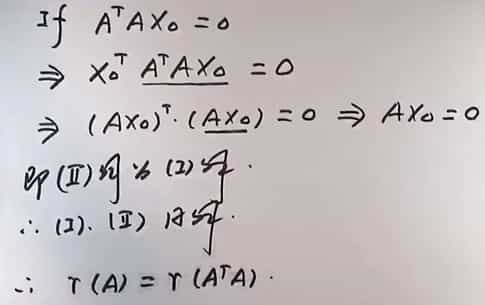 If AᵀAX₀ = 0
⇒ X₀ᵀ AᵀAX₀ = 0
⇒ (AX₀)ᵀ·(AX₀) = 0 ⇒ AX₀ = 0
即(II)的解为(I)解.
∴ (I). (II) 同解.
∴ r(A) = r(AᵀA).